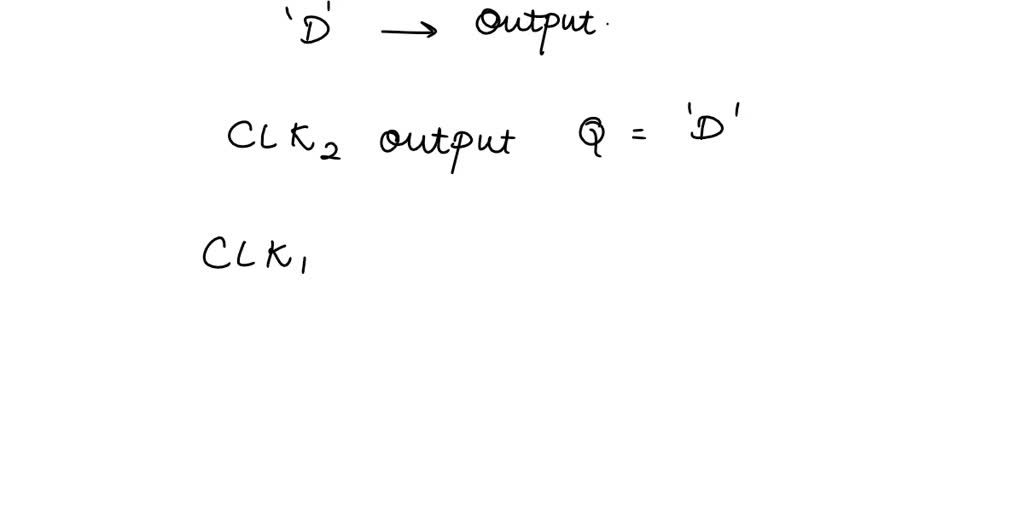 'D' → Output.
CLK₂ output Q = 'D'
CLK₁